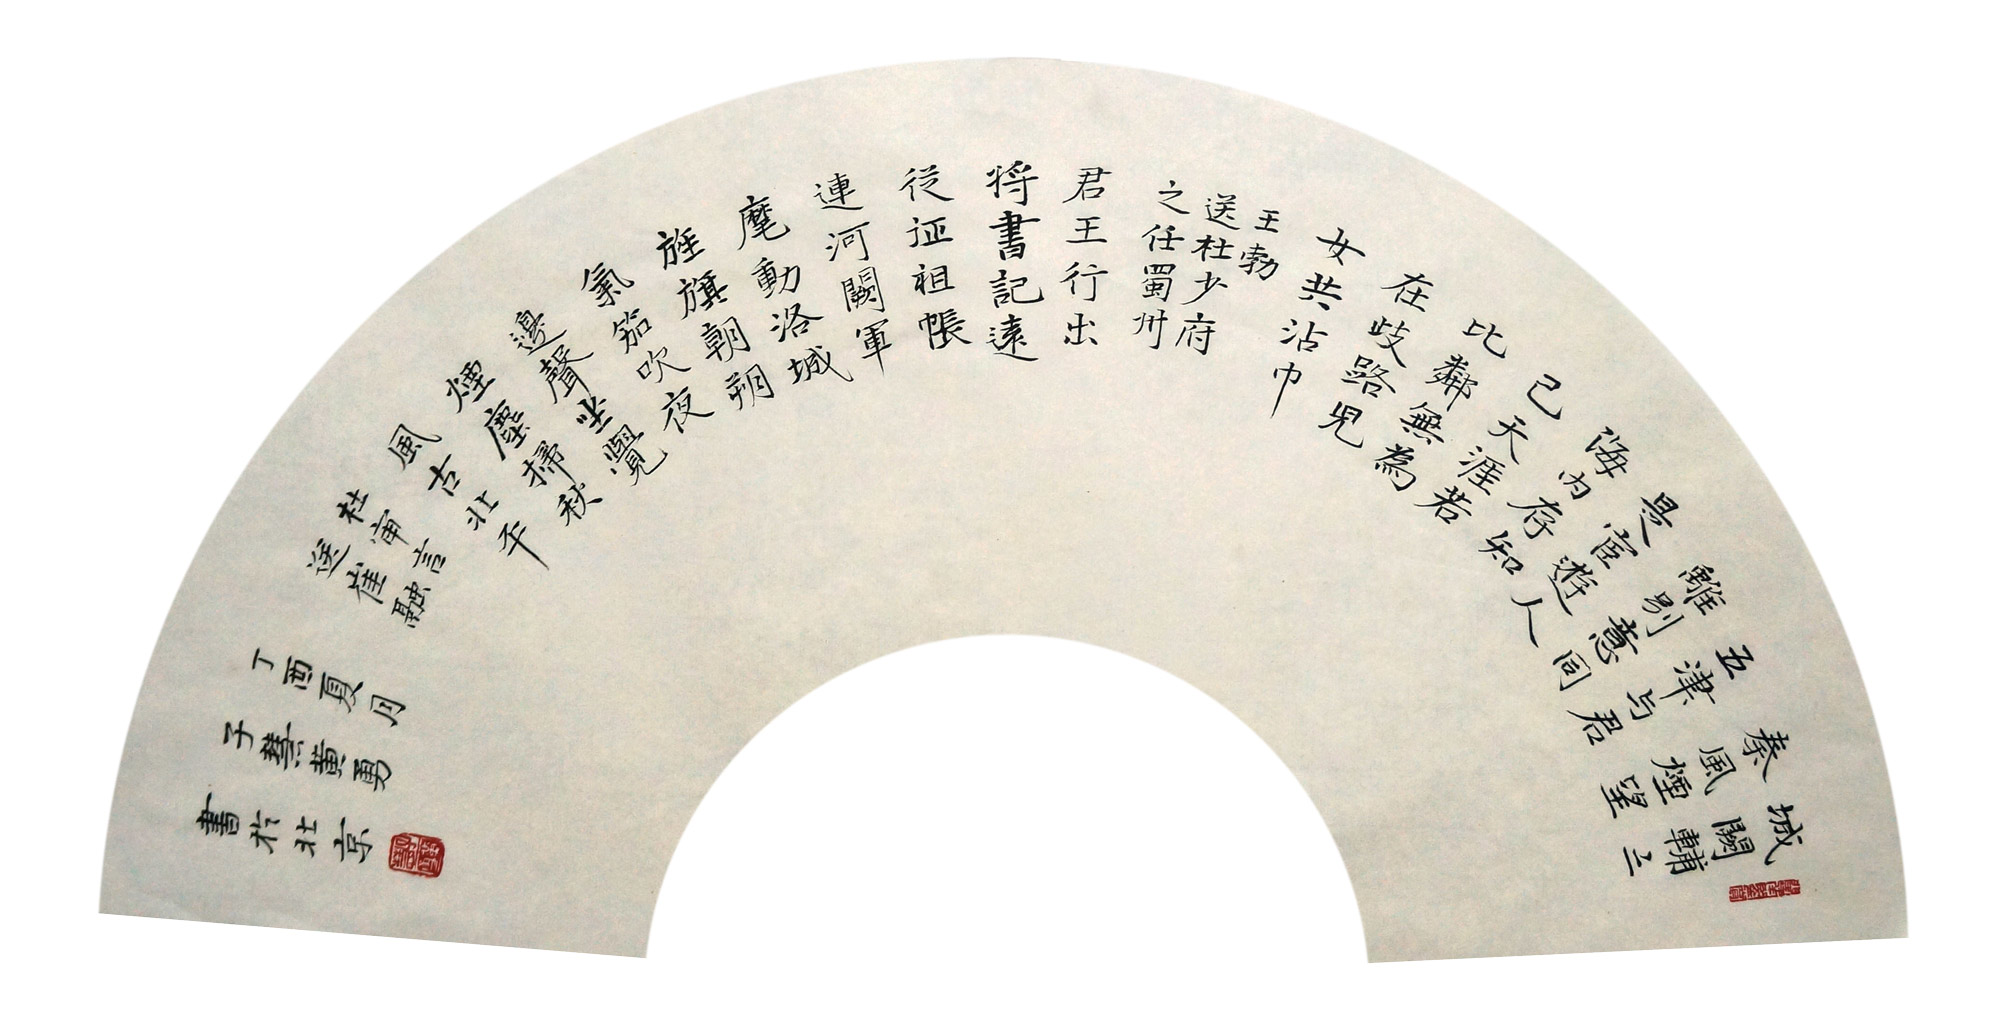 城闕輔三
秦風煙望
五津与君
離别意同
是宦遊人
海内存知
己天涯若
比鄰無為
在歧路兒
女共沾巾
王勃
送杜少府
之任蜀州
君王行出
将書記遠
從征祖帳
連河闕軍
麾動洛城
旌旗朝朔
氣笳吹夜
邊聲坐覺
煙塵掃秋
風古北平
杜审言
送崔融
丁酉夏月
子慧黄勇
書於北京